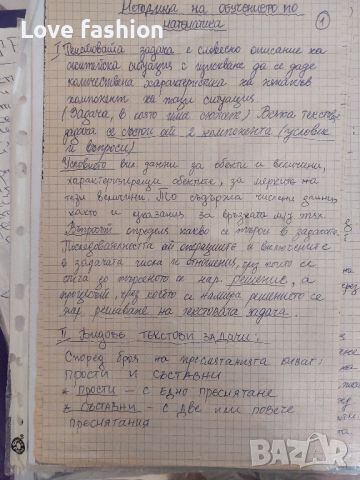 Love fashion
Методика на обучението по
математика
1
I Текстовата задача е словесно описание на
житейска ситуация с изискване да се даде
количествена характеристика на някакъв
компонент на тази ситуация.
(Задача, в която има сюжет) Всяка текстова
задача се състои от 2 компонента (условие
и въпрос)
Условието вкл. данни за обекти и величини,
характеризиращи обектите, за мерките на
тези величини. То съдържа числени данни
както и указания за връзката м/у тях.
Въпросът определя какво се търси в задачата.
Последователността от операциите и включените
в задачата числа и отношения, чрез които се
стига до търсеното се нар. решение, а
процесът, чрез който се намира решението се
нар. решаване на текстовата задача.
II Видове текстови задачи:
Според броя на пресмятанията биват:
прости и съставни
* прости – с едно пресмятане
* съставни – с две или повече
пресмятания
BAZAR